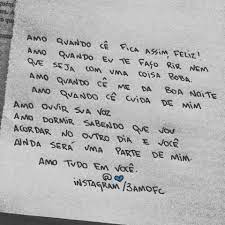 AMO QUANDO CÊ FICA ASSIM, FELIZ!
AMO QUANDO EU TE FAÇO RIR NEM
QUE SEJA COM UMA COISA BOBA.
AMO QUANDO CÊ ME DA BOA NOITE
AMO QUANDO CÊ CUIDA DE MIM
AMO OUVIR SUA VOZ
AMO DORMIR SABENDO QUE VOU
ACORDAR NO OUTRO DIA E VOCÊ
AINDA SERÁ UMA PARTE DE MIM.
AMO TUDO EM VOCÊ.
@
INSTAGRAM/3AMOFC